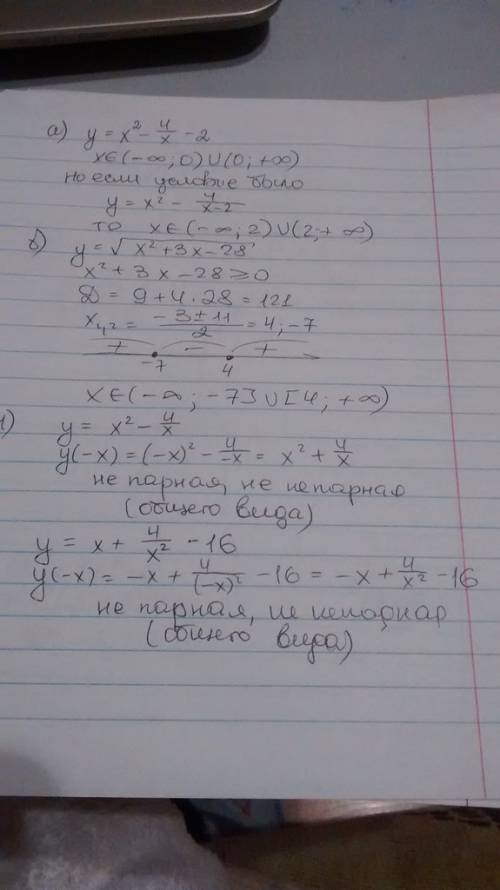 а) y = x² - 4/x - 2
x∈(-∞; 0)∪(0; +∞)
но если условие было
y = x² - 4/(x-2)
то x∈(-∞; 2)∪(2; +∞)
б) y = √(x² + 3x - 28)
x² + 3x - 28 ≥ 0
D = 9 + 4·28 = 121
x₁,₂ = (-3 ± 11)/2 = 4; -7
+ - +
-7 4
x∈(-∞; -7]∪[4; +∞)
1) y = x² - 4/x
y(-x) = (-x)² - 4/-x = x² + 4/x
не парная, не непарная
(общего вида)
y = x + 4/x² - 16
y(-x) = -x + 4/(-x)² - 16 = -x + 4/x² - 16
не парная, не непарная
(общего вида)